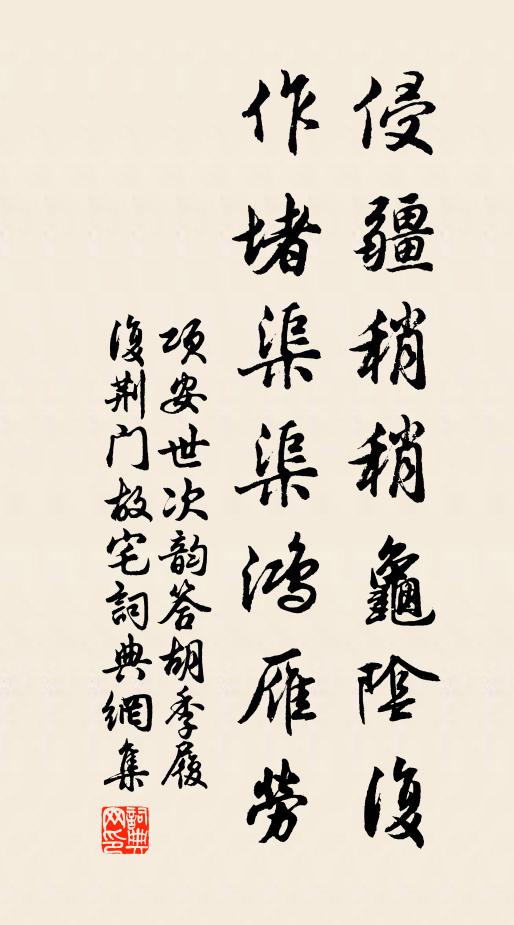 侵疆稍稍龜陰復
作堵渠渠鴻雁勞
項安世次韵答胡季履
復荆门故宅詞典網集
詞典网印